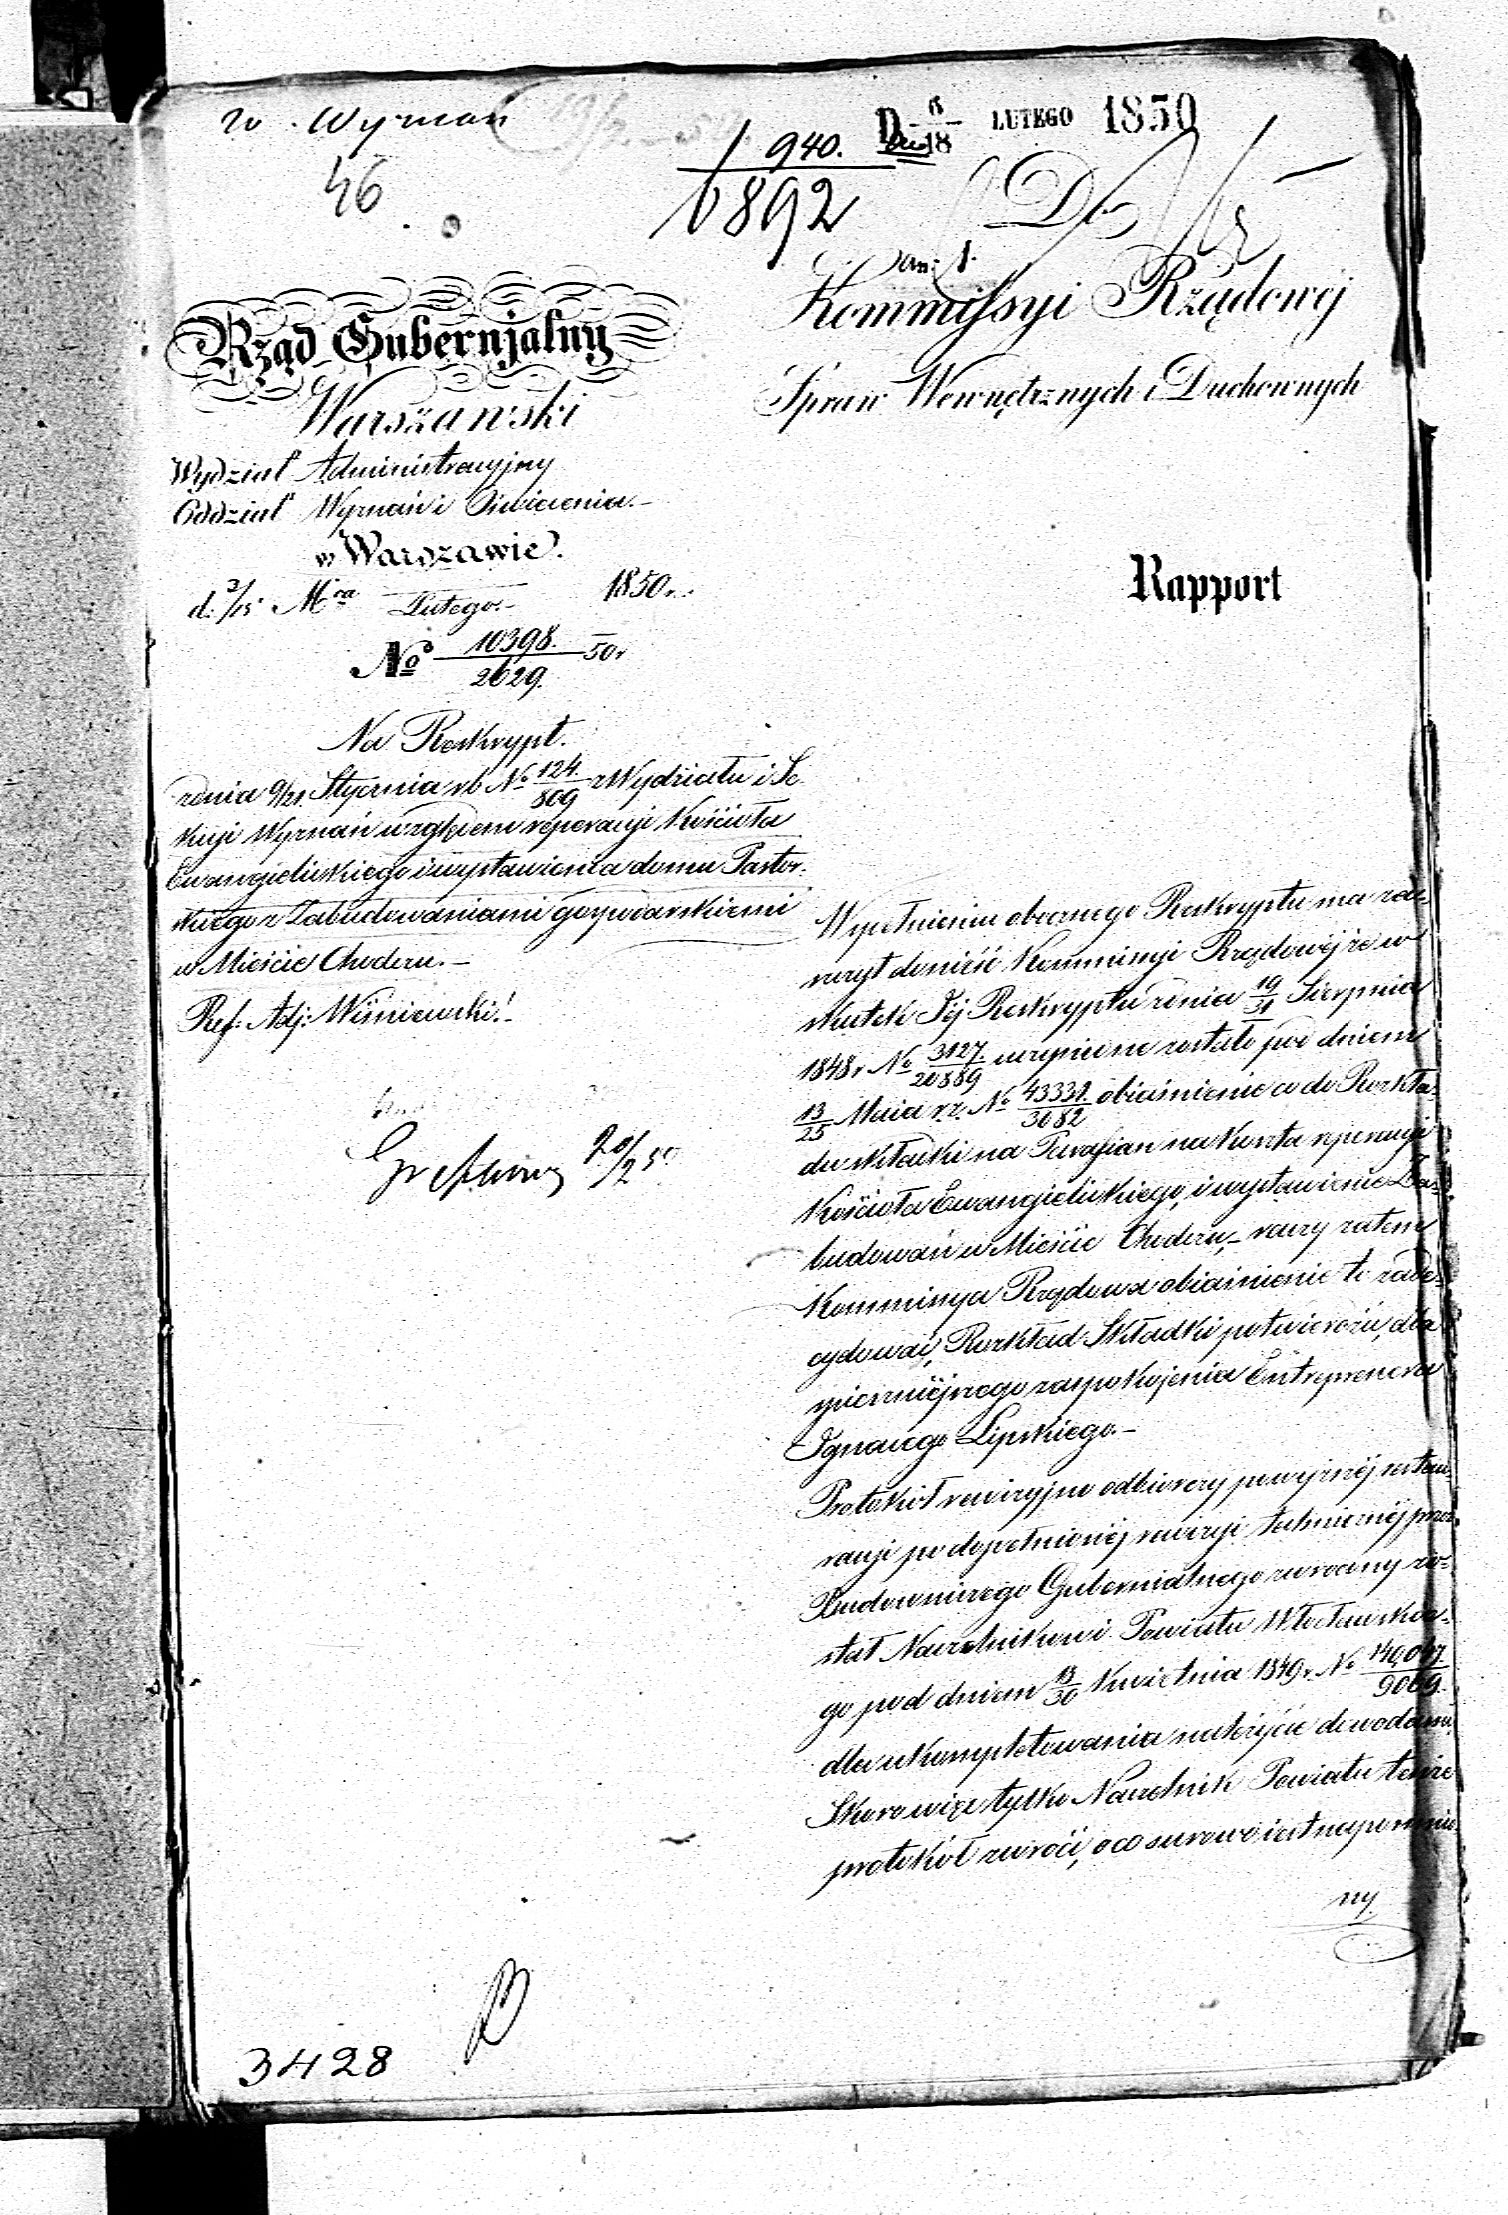 w. Wyznań
46
940.
6892
D. 6/18 LUTEGO 1850
Do
Kommissyi Rządowéj
Spraw Wewnętrznych i Duchownych
Rząd Gubernjalny
Warszawski
Wydział Administracyjny
Oddział Wyznań i Oświecenia.-
w Warszawie.
d. 3/15 Mca Lutego.- 1850r.
No 10398./2629. 50r
Rapport
Na Reskrypt.
z dnia 9/21 Stycznia rb No 124./809 z Wydziału i Se
kcyi Wyznań względem reperacyi Kościoła
Ewangielickiego i wystawienia domu Pastor-
skiego z Zabudowaniami gospodarskiemi
w Mieście Chodczu.-
Ref: Adj: Wiśniewski!-
20/2 50
W spełnieniu obocznego Reskryptu ma zasz-
czyt donieść Kommissyi Rządowéj że w
skutek Jéj Reskryptu z dnia 19/31 Sierpnia
1848r No 3127./20889 uczynione zostało pod dniem
13/25 Maia r.z. No 43331./3682 obiaśnienie co do Rozkła-
du składki na Parafian na koszta reperacyi
Kościoła Ewangielickiego, i wystawienie Za-
budowań w Mieście Chodczu,- raczy zatem
Kommissya Rządowa obiaśnienie to zade-
cydować, Rozkład Składki potwierdzić, dla
śpieszniéjszego zaspokojenia Entreprenera
Ignacego Lipskiego.-
Protokół rewizyjno odbiorczy powyższéj restau-
racyi po dopełnionéj rewizyi technicznéj przez
Budowniczego Gubernialnego zwrócony zo-
stał Naczelnikowi Powiatu Włocławskie-
go pod dniem 18/30 Kwietnia 1849r No 140,047/9069.
dla ukompletowania należycie dowodami.
Skoro więc tylko Naczelnik Powiatu tenże
protokół zwróci, o co surowo iest napomnio-
ny.
3428